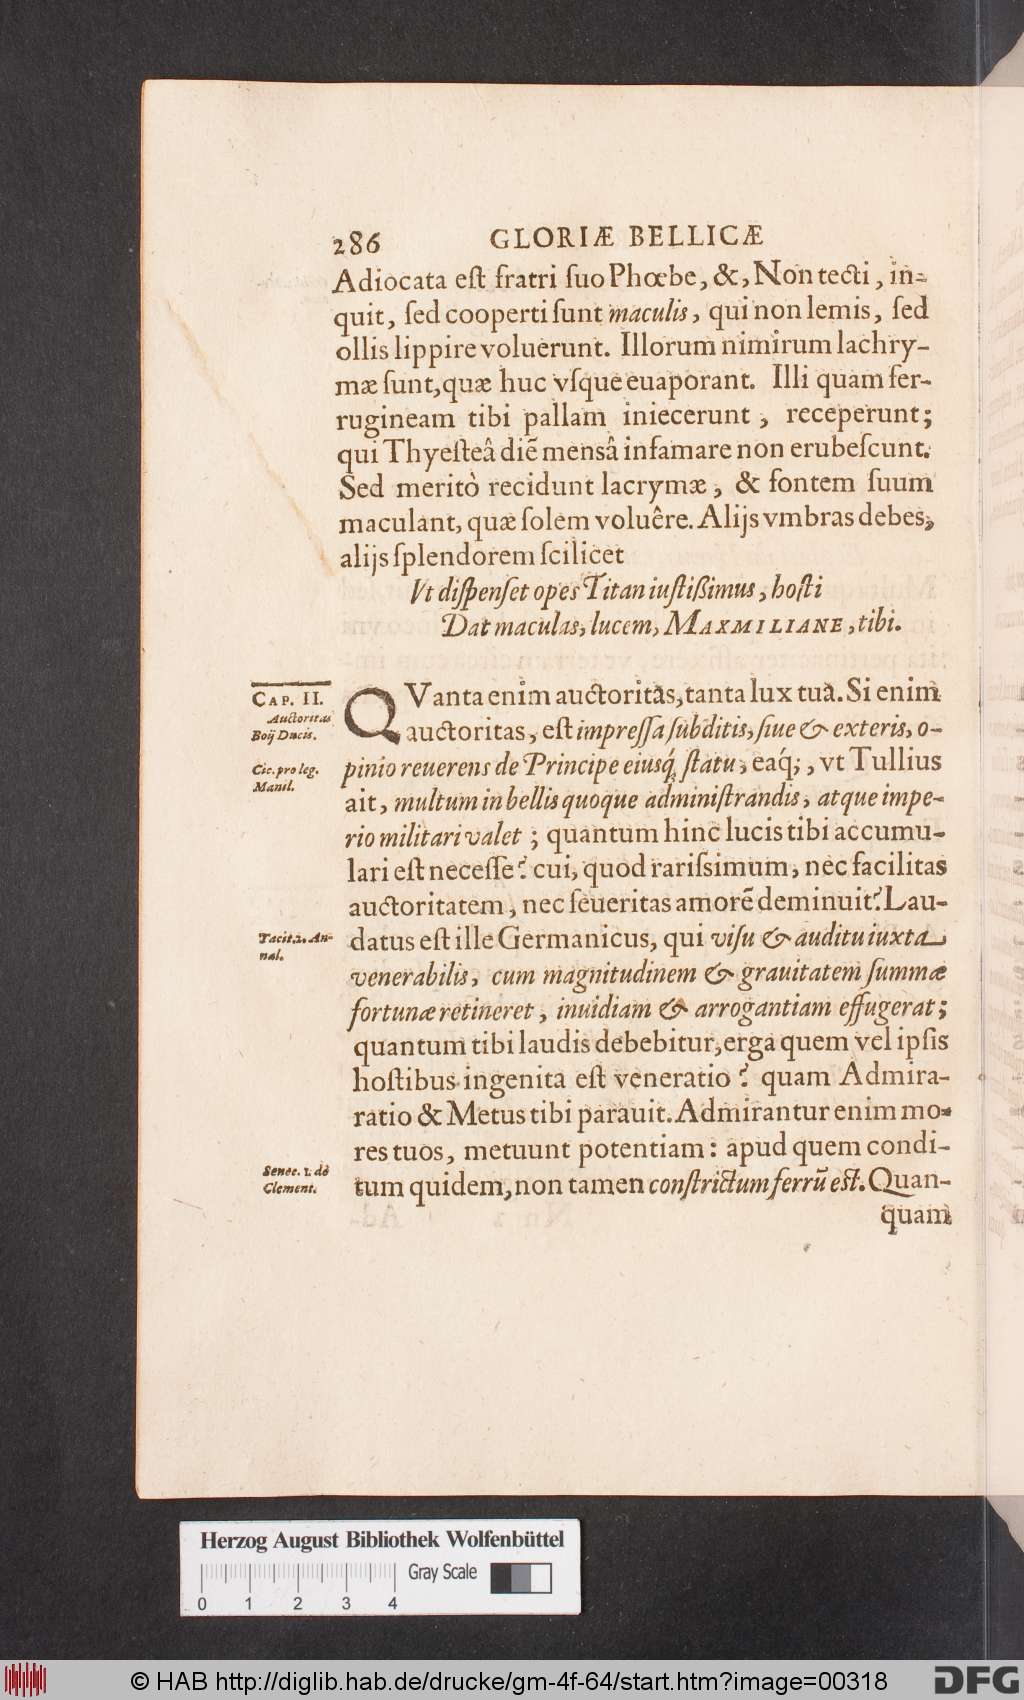 286 GLORIÆ BELLICÆ
Adiocata eſt fratri ſuo Phœbe, &, Non tecti, in-
quit, ſed cooperti ſunt maculis, qui non lemis, ſed
ollis lippire voluerunt. Illorum nimirum lachry-
mæ ſunt, quæ huc vſque euaporant. Illi quam fer-
rugineam tibi pallam iniecerunt, receperunt;
qui Thyeſteâ diē mensâ infamare non erubeſcunt.
Sed meritò recidunt lacrymæ, & fontem ſuum
maculant, quæ ſolem voluêre. Alijs vmbras debes,
alijs ſplendorem ſcilicet
Vt diſpenſet opes Titan iuſtißimus, hoſti
Dat maculas, lucem, MAXMILIANE, tibi.
CAP. II.
Auctoritas
Boij Ducis.
QVanta enim auctoritas, tanta lux tua. Si enim
auctoritas, eſt impreſſa ſubditis, ſiue & exteris, o-
Cic. pro leg.
Manil.
pinio reuerens de Principe eiusq́; ſtatu, eaq́;, vt Tullius
ait, multum in bellis quoque adminiſtrandis, atque impe-
rio militari valet; quantum hinc lucis tibi accumu-
lari eſt neceſſe? cui, quod rariſsimum, nec facilitas
auctoritatem, nec ſeueritas amorē deminuit? Lau-
Tacit. 2. An-
nal.
datus eſt ille Germanicus, qui viſu & auditu iuxta
venerabilis, cum magnitudinem & grauitatem ſummæ
fortunæ retineret, inuidiam & arrogantiam effugerat;
quantum tibi laudis debebitur, erga quem vel ipſis
hoſtibus ingenita eſt veneratio? quam Admira-
ratio & Metus tibi parauit. Admirantur enim mo-
res tuos, metuunt potentiam: apud quem condi-
Senec. 1. de
Clement.
tum quidem, non tamen conſtrictum ferrū eſt. Quan-
quam
Herzog August Bibliothek Wolfenbüttel
Gray Scale
0 1 2 3 4
© HAB http://diglib.hab.de/drucke/gm-4f-64/start.htm?image=00318 DFG